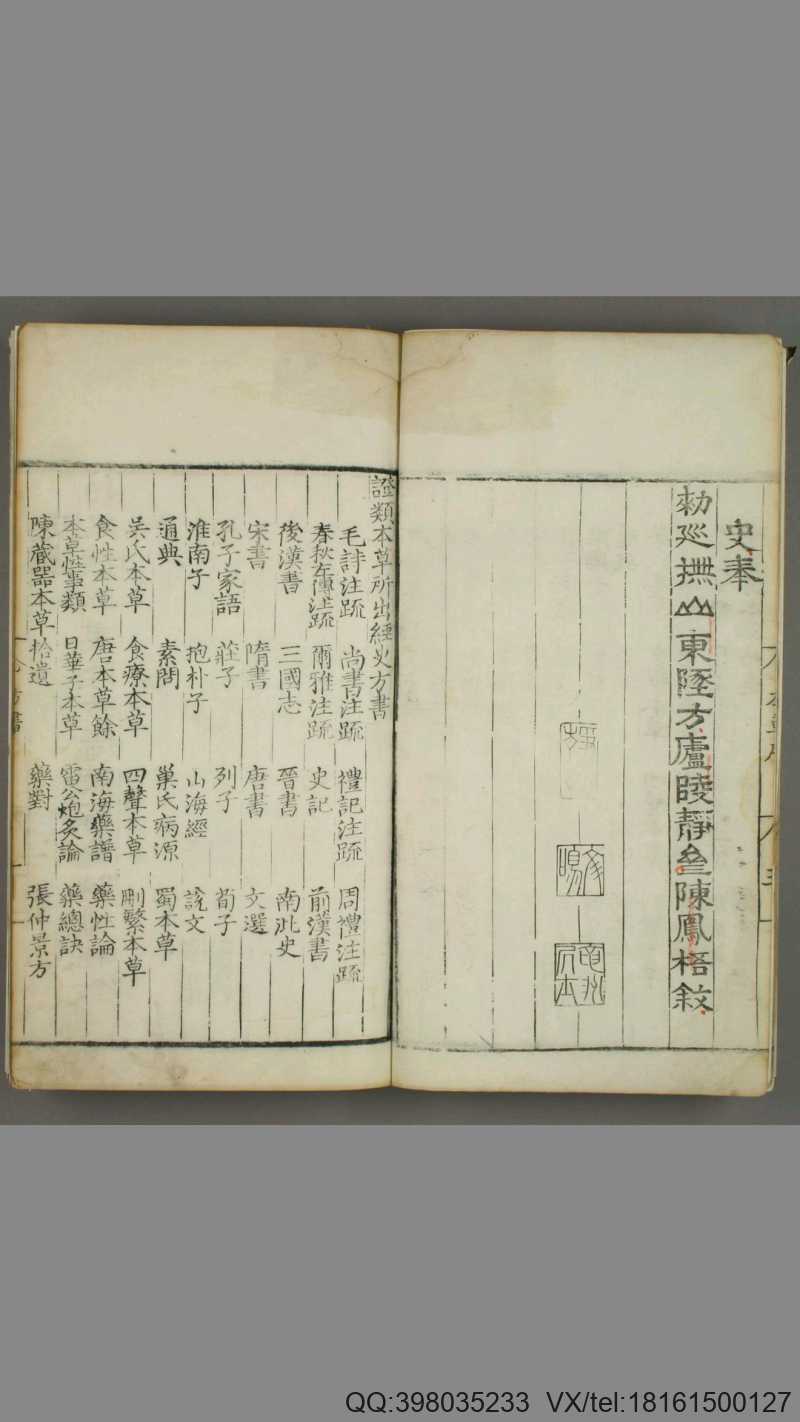 史奉
勑廵撫山東墬方廬陵靜亝陳鳳梧敘
證類本草所出經史方書
毛詩注疏 尚書注疏 禮記注疏 周禮注疏
春秋左傳注疏 爾雅注疏 史記 前漢書
後漢書 三國志 晉書 南北史
宋書 隋書 唐書 文選
孔子家語 莊子 列子 荀子
淮南子 抱朴子 山海經 說文
通典 素問 巢氏病源 蜀本草
吳氏本草 食療本草 四聲本草 刪繁本草
食性本草 唐本草餘 南海藥譜 藥性論
本草性事類 日華子本草 雷公炮炙論 藥總訣
陳藏器本草拾遺 藥對 張仲景方
QQ:398035233 VX/tel:18161500127